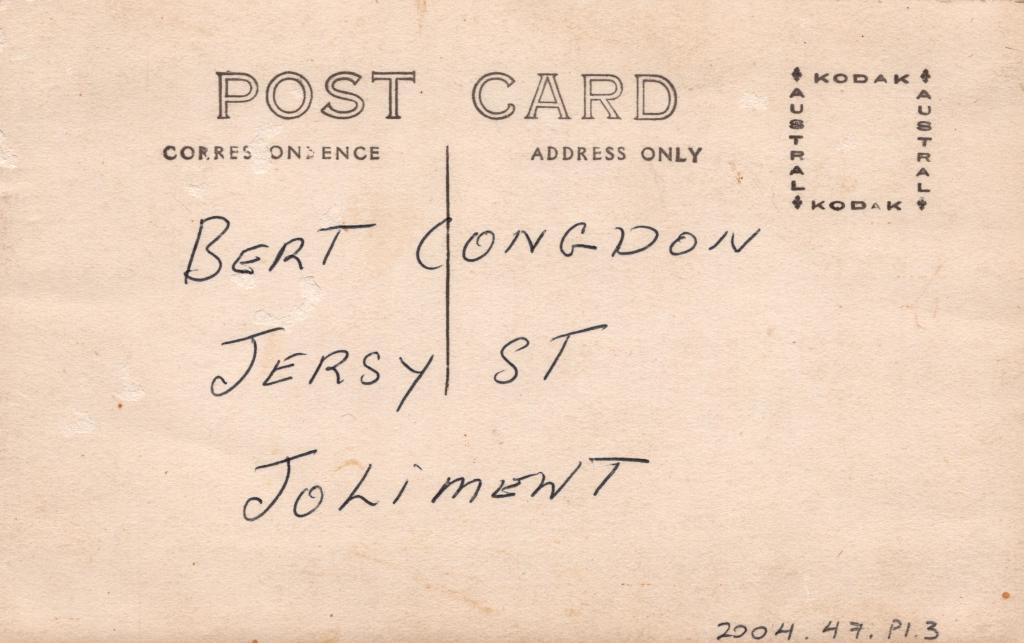 POST CARD
CORRES ON ENCE
ADDRESS ONLY
KODAK
AUSTRAL
AUSTRAL
KODAK
BERT CONGDON
JERSY ST
JOLIMENT
2004.47.P1.3